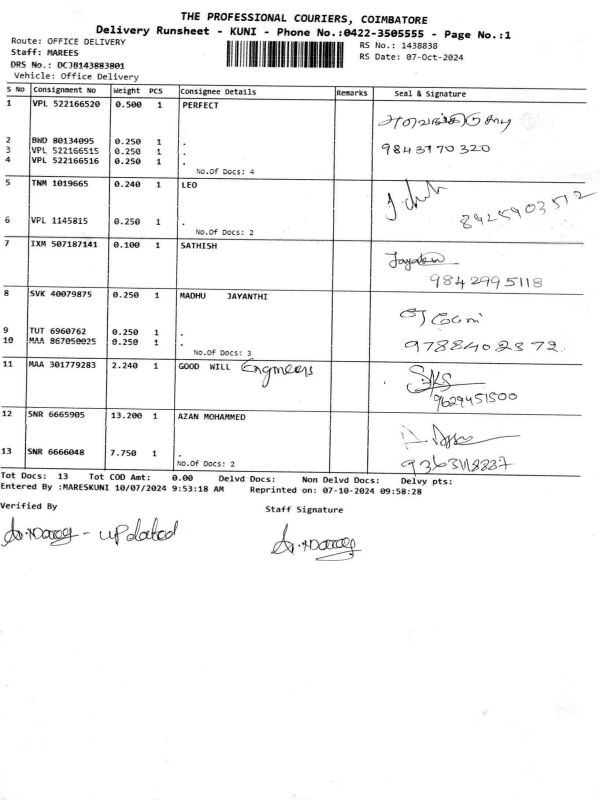 THE PROFESSIONAL COURIERS, COIMBATORE
Delivery Runsheet - KUNI - Phone No.:0422-3505555 - Page No.:1
Route: OFFICE DELIVERY
RS No.: 1438838
Staff: MAREES
RS Date: 07-Oct-2024
DRS No.: DCJB143883801
Vehicle: Office Delivery
S No Consignment No Weight PCS Consignee Details Remarks Seal & Signature
1 VPL 522166520 0.500 1 PERFECT
2 BWD 80134095 0.250 1 .
3 VPL 522166515 0.250 1 . 9843770320
4 VPL 522166516 0.250 1 .
No.Of Docs: 4
5 TNM 1019665 0.240 1 LEO
6 VPL 1145815 0.250 1 . 8925903512
No.Of Docs: 2
7 IXM 507187141 0.100 1 SATHISH
9842995118
8 SVK 40079875 0.250 1 MADHU JAYANTHI
9 TUT 6960762 0.250 1 .
10 MAA 867050025 0.250 1 . 9788402372.
No.Of Docs: 3
11 MAA 301779283 2.240 1 GOOD WILL Engineers
9629451500
12 SNR 6665905 13.200 1 AZAN MOHAMMED
13 SNR 6666048 7.750 1 . 9363118887
No.Of Docs: 2
Tot Docs: 13 Tot COD Amt: 0.00 Delvd Docs: Non Delvd Docs: Delvy pts:
Entered By :MARESKUNI 10/07/2024 9:53:18 AM Reprinted on: 07-10-2024 09:58:28
Verified By Staff Signature
- updated